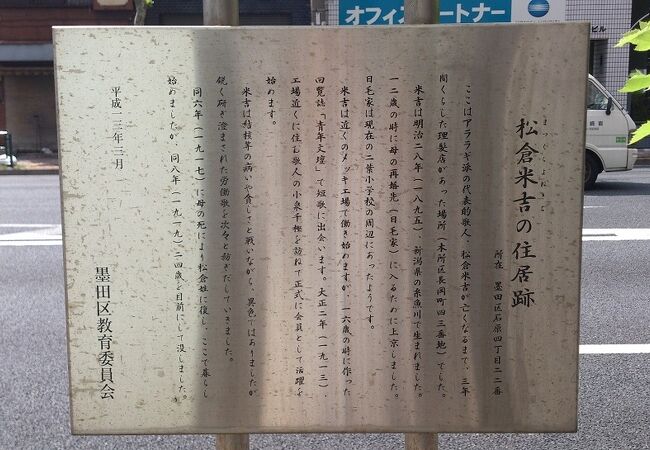 オフィスパートナー
ビル
松倉米吉の住居跡
まつくらよねきち
所在 墨田区石原四丁目二二番
ここはアララギ派の代表的歌人、松倉米吉が亡くなるまで、三年
間くらした理髪店があった場所(本所区長岡町四三番地)でした。
米吉は明治二八年(一八九五)、新潟県の糸魚川で生まれました。
一二歳の時に母の再婚先(日毛家)に入るために上京しました。
日毛家は現在の二葉小学校の周辺にあったようです。
米吉は近くのメッキ工場で働き始めますが、一六歳の時に作った
回覧誌「青年文壇」で短歌に出会います。大正二年(一九一三)、
工場近くに住む歌人の小泉千樫を訪ねて正式に会員として活躍を
始めます。
米吉は結核等の病いや貧しさと戦いながら、異色ではありましたが
鋭く研ぎ澄まされた労働歌を次々と紡ぎだしていきました。
同六年(一九一七)に母の死により松倉姓に復し、ここで暮らし
始めましたが、同八年(一九一九)二四歳を目前にして没しました。
平成一三年三月
墨田区教育委員会